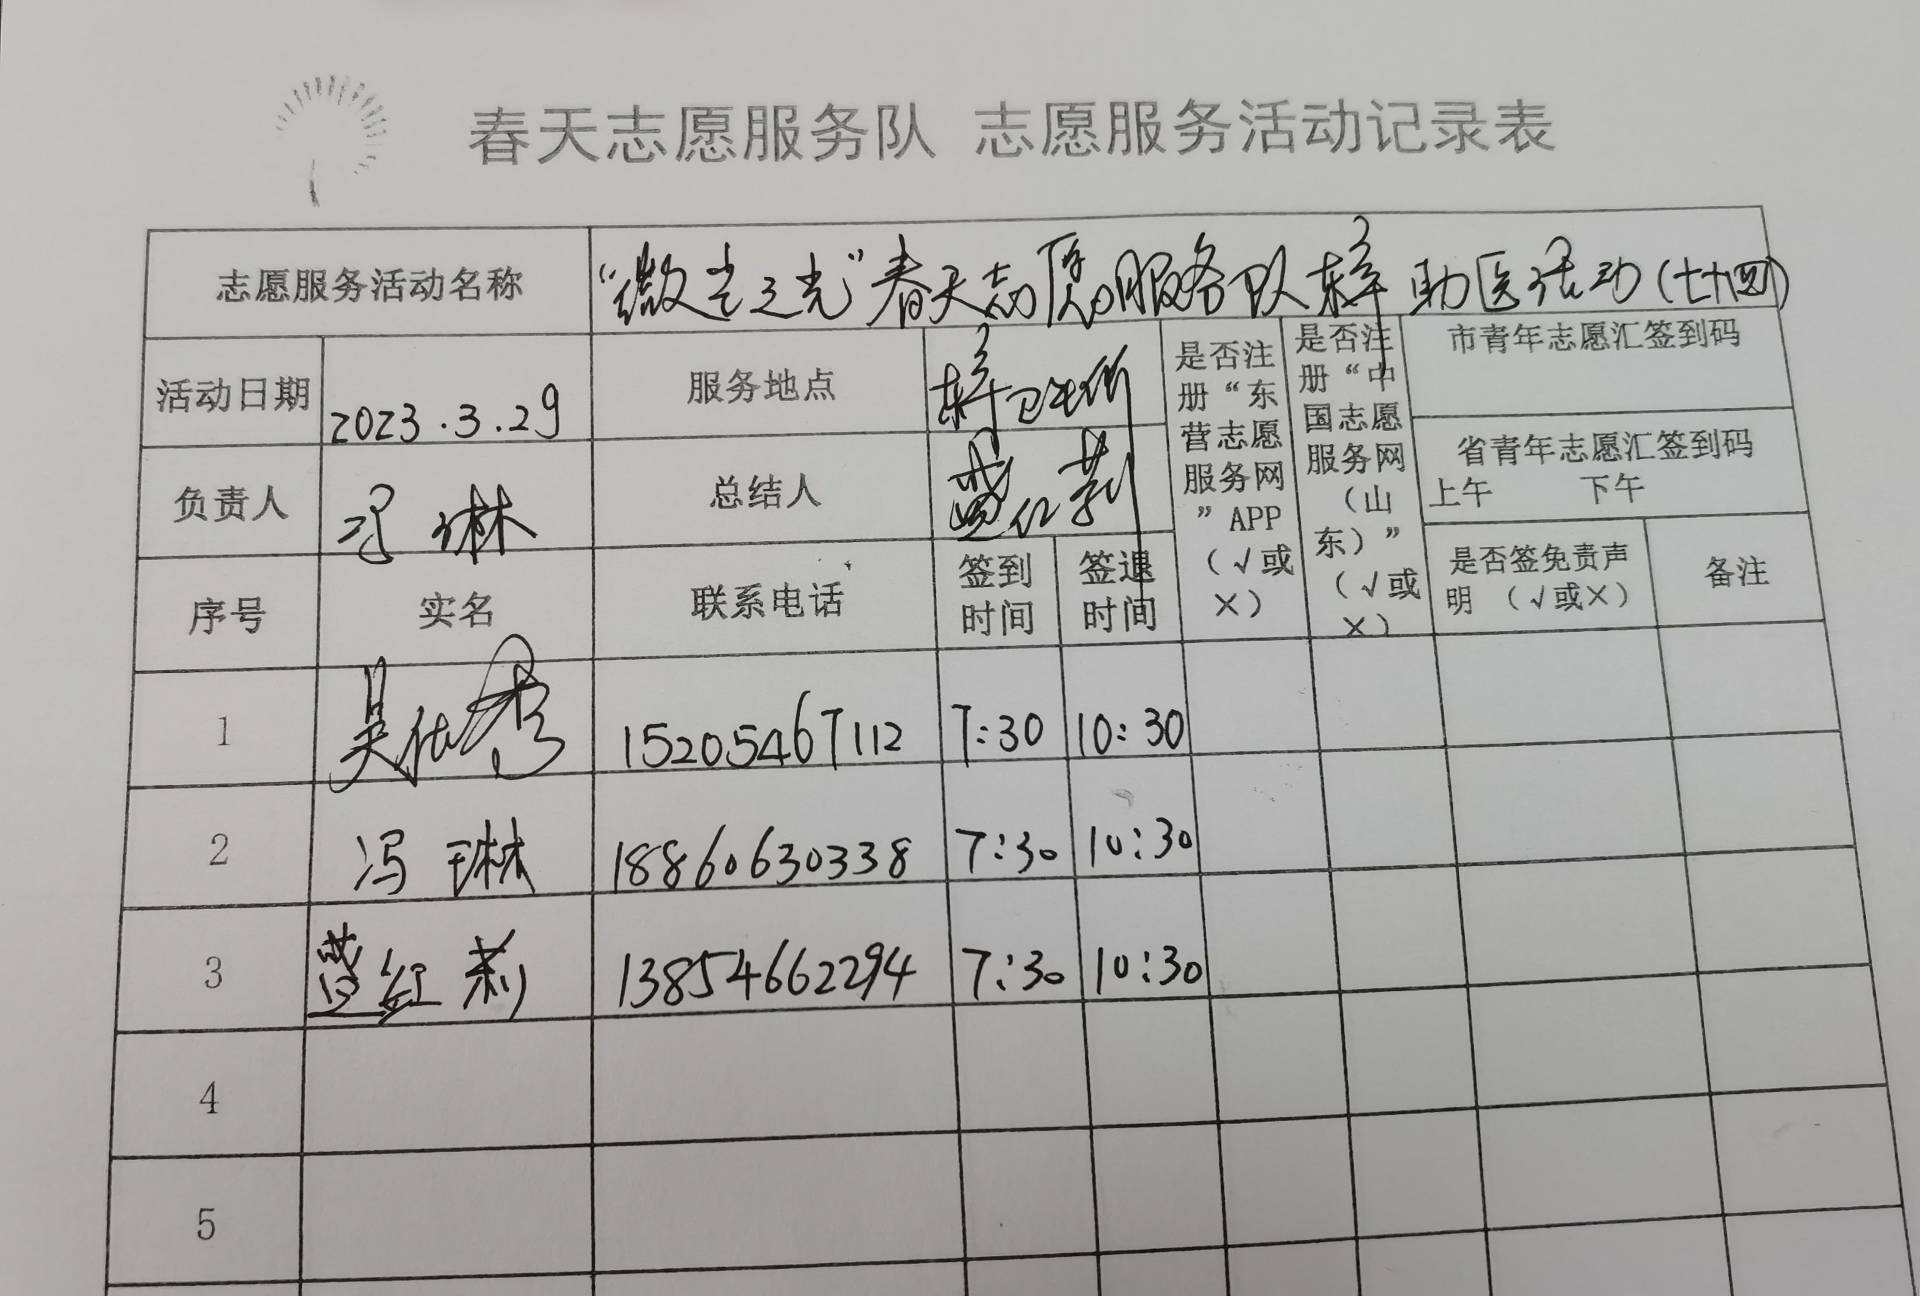 春天志愿服务队 志愿服务活动记录表
志愿服务活动名称
“微尘之光”春天志愿服务队 助医活动(七十四)
活动日期
2023.3.29
服务地点
是否注册“东营志愿服务网”APP(√或×)
是否注册“中国志愿服务网(山东)”(√或×)
市青年志愿汇签到码
负责人
冯琳
总结人
省青年志愿汇签到码
上午 下午
序号
实名
联系电话
签到时间
签退时间
是否签免责声明 (√或×)
备注
1
吴 秀
15205467112
7:30
10:30
2
冯琳
18860630338
7:30
10:30
3
红莉
13854662294
7:30
10:30
4
5